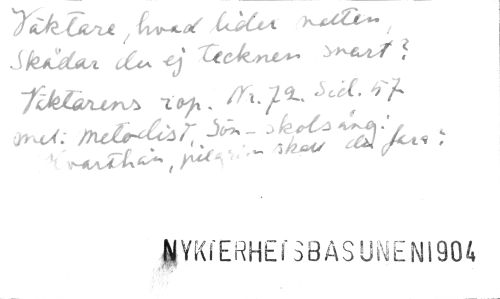 Väktare, hvad lider natten,
Skådar du ej tecknen snart?
Väktarens rop. Nr. 72. Sid. 57
mel: metodist, Sön-skolsång:
Hvarthän, pilgrim skall du fara?
NYKTERHETSBASUNEN 1904